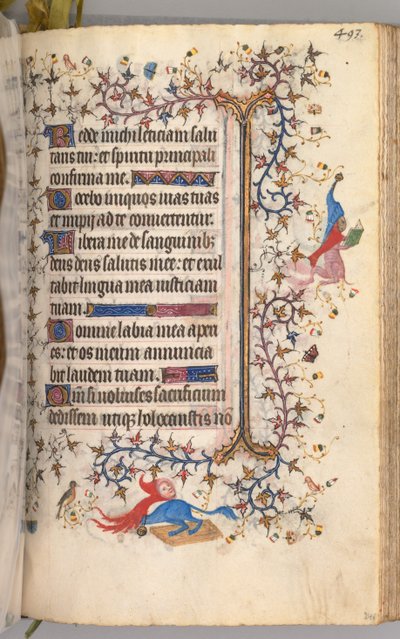 493.
Redde michi leticiam salu
taris tui: et spiritu principali
confirma me.
Docebo iniquos uias tuas
et impij ad te conuertentur.
Libera me de sanguinib
deus deus salutis mee: et exul
tabit lingua mea iusticiam
tuam.
Domine labia mea aperi
es: et os meum annuncia
bit laudem tuam.
Qm si uoluisses sacrificium
dedissem utiqz holocaustis nō